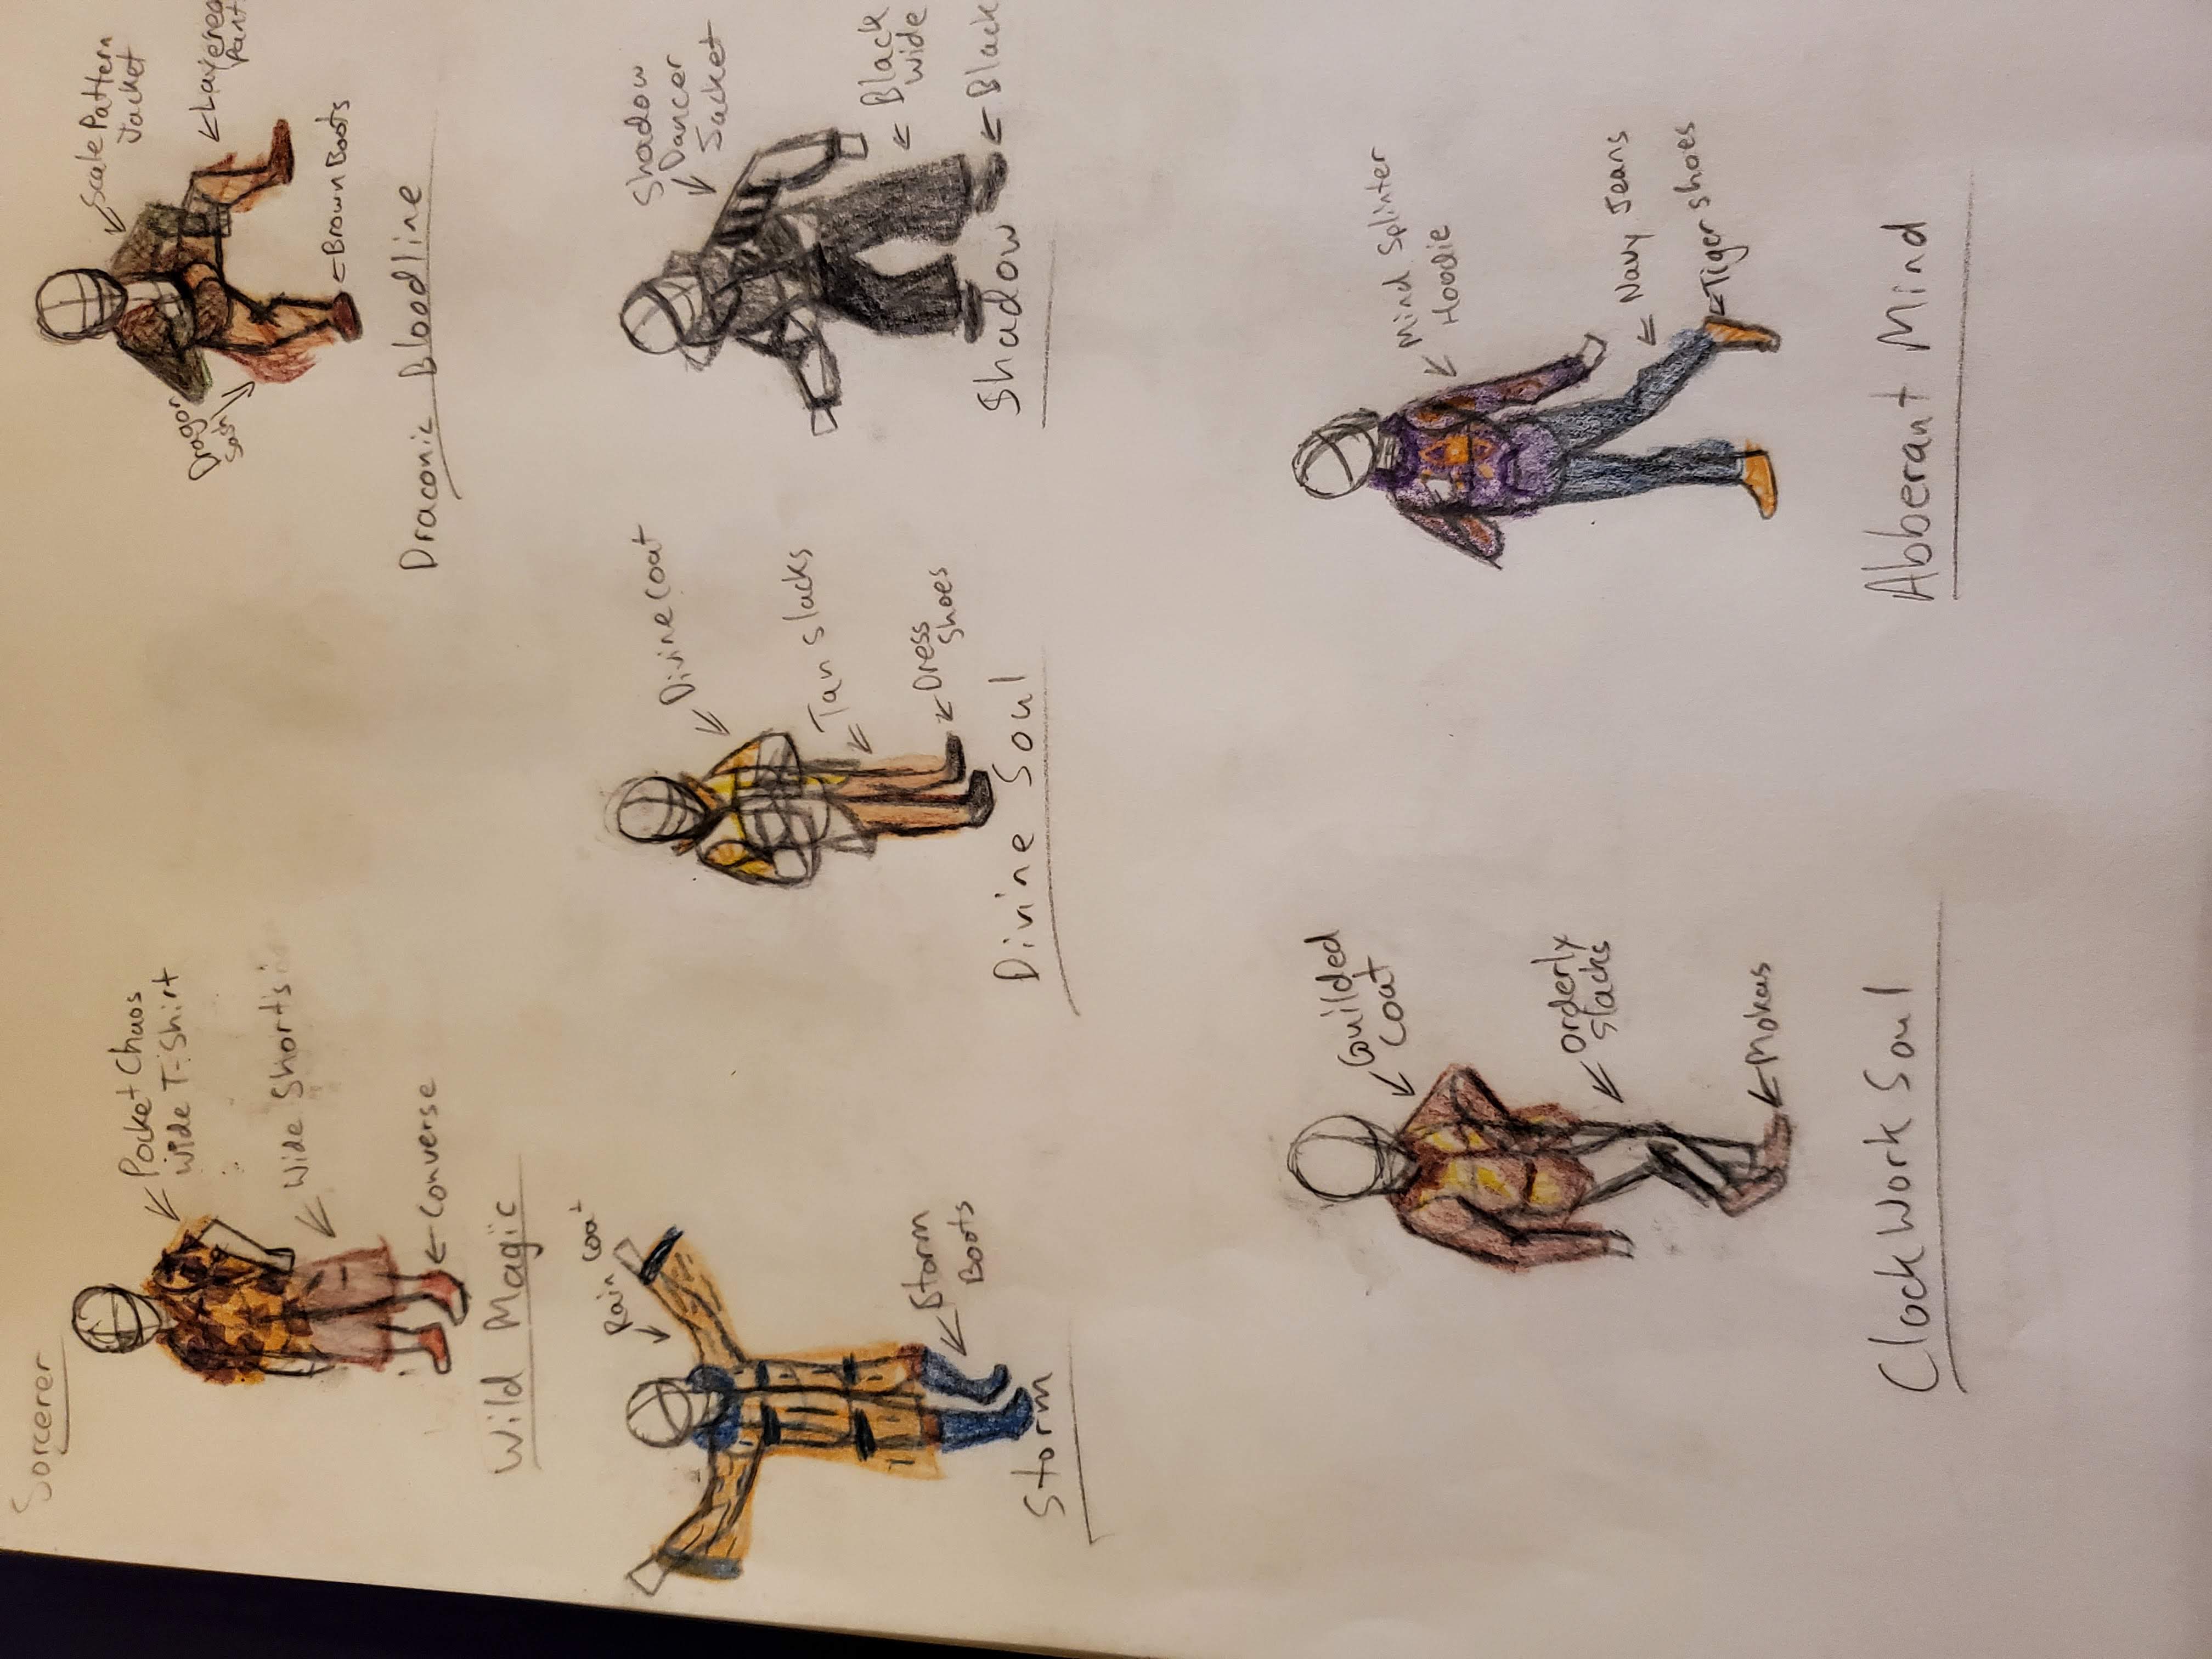 Sorcerer
Pocket Chaos
Wide T-Shirt
Wide Shorts
Converse
Wild Magic
Scale Pattern
Jacket
Dragon
Sash
Layered
Pant
Brown Boots
Draconic Bloodline
Rain Coat
Storm
Boots
Storm
Divine coat
Tan slacks
Dress
Shoes
Divine Soul
Shadow
Dancer
Jacket
Black
Wide
Black
Shadow
Guilded
Coat
Orderly
Slacks
Mokas
ClockWork Soul
Mind Splinter
Hoodie
Navy Jeans
Tiger shoes
Abberant Mind